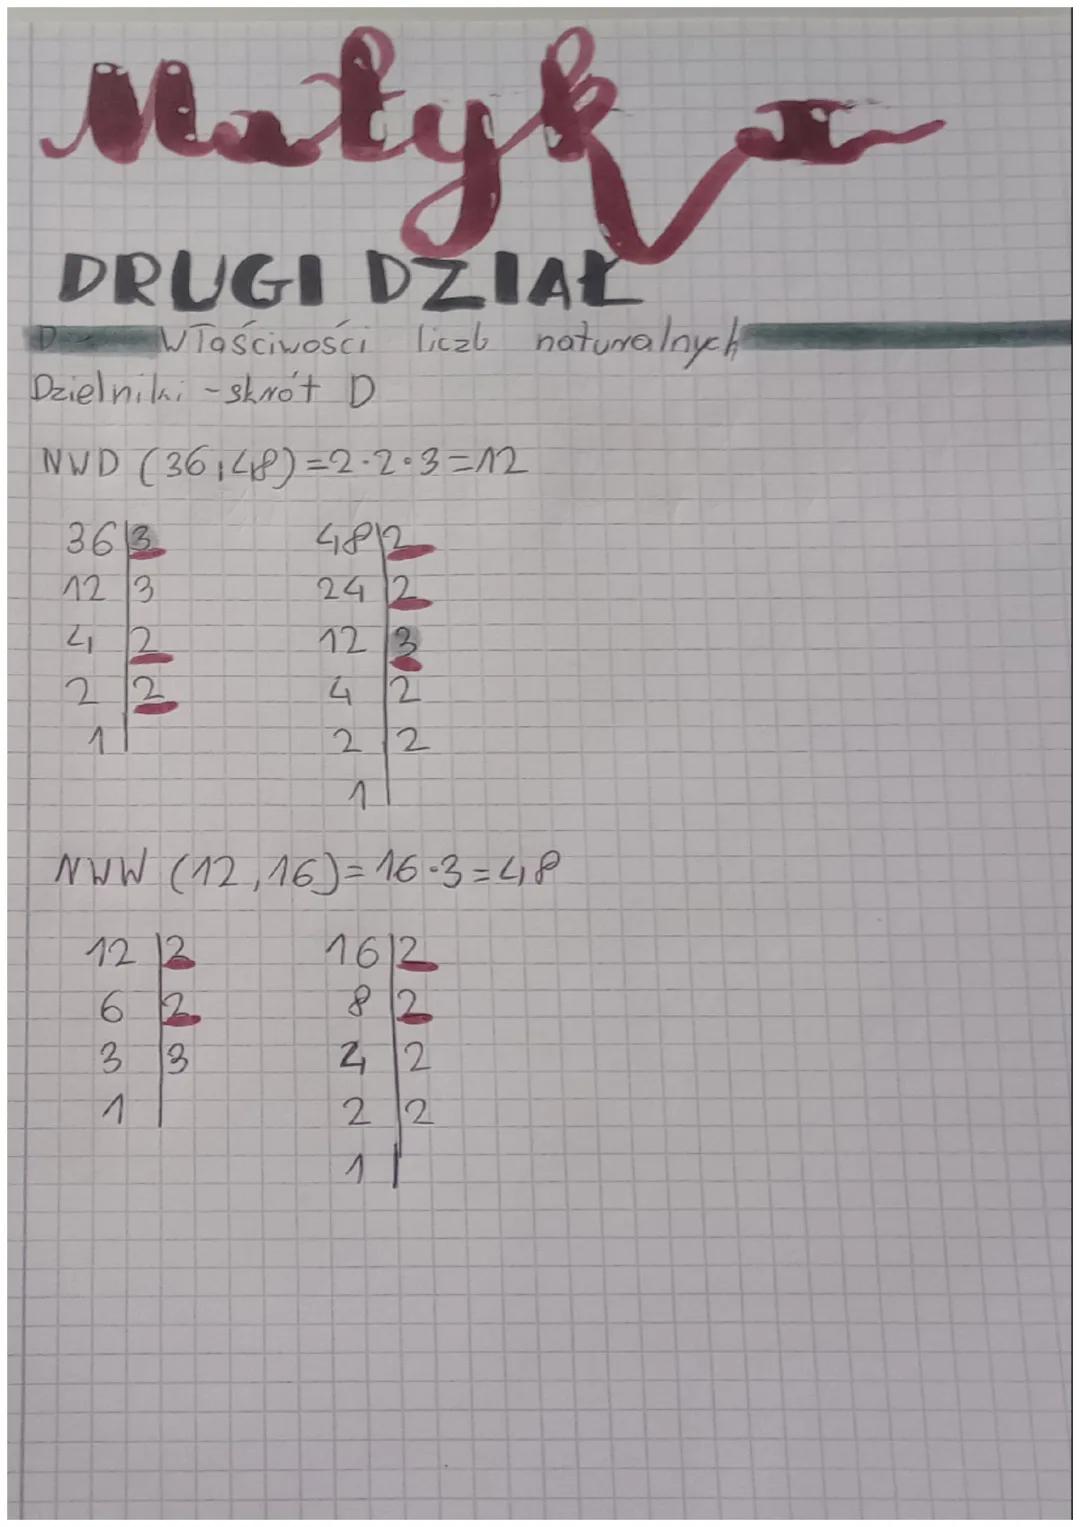 Matyka
DRUGI DZIAŁ
Właściwości liczb naturalnych
Dzielniki - skrót D
NWD (36,48)=2·2·3=12
36|3 48|2
12|3 24|2
4|2 12|3
2|2 4|2
1| 2|2
1|
NWW (12,16)=16·3=48
12|2 16|2
6|2 8|2
3|3 4|2
1| 2|2
1|